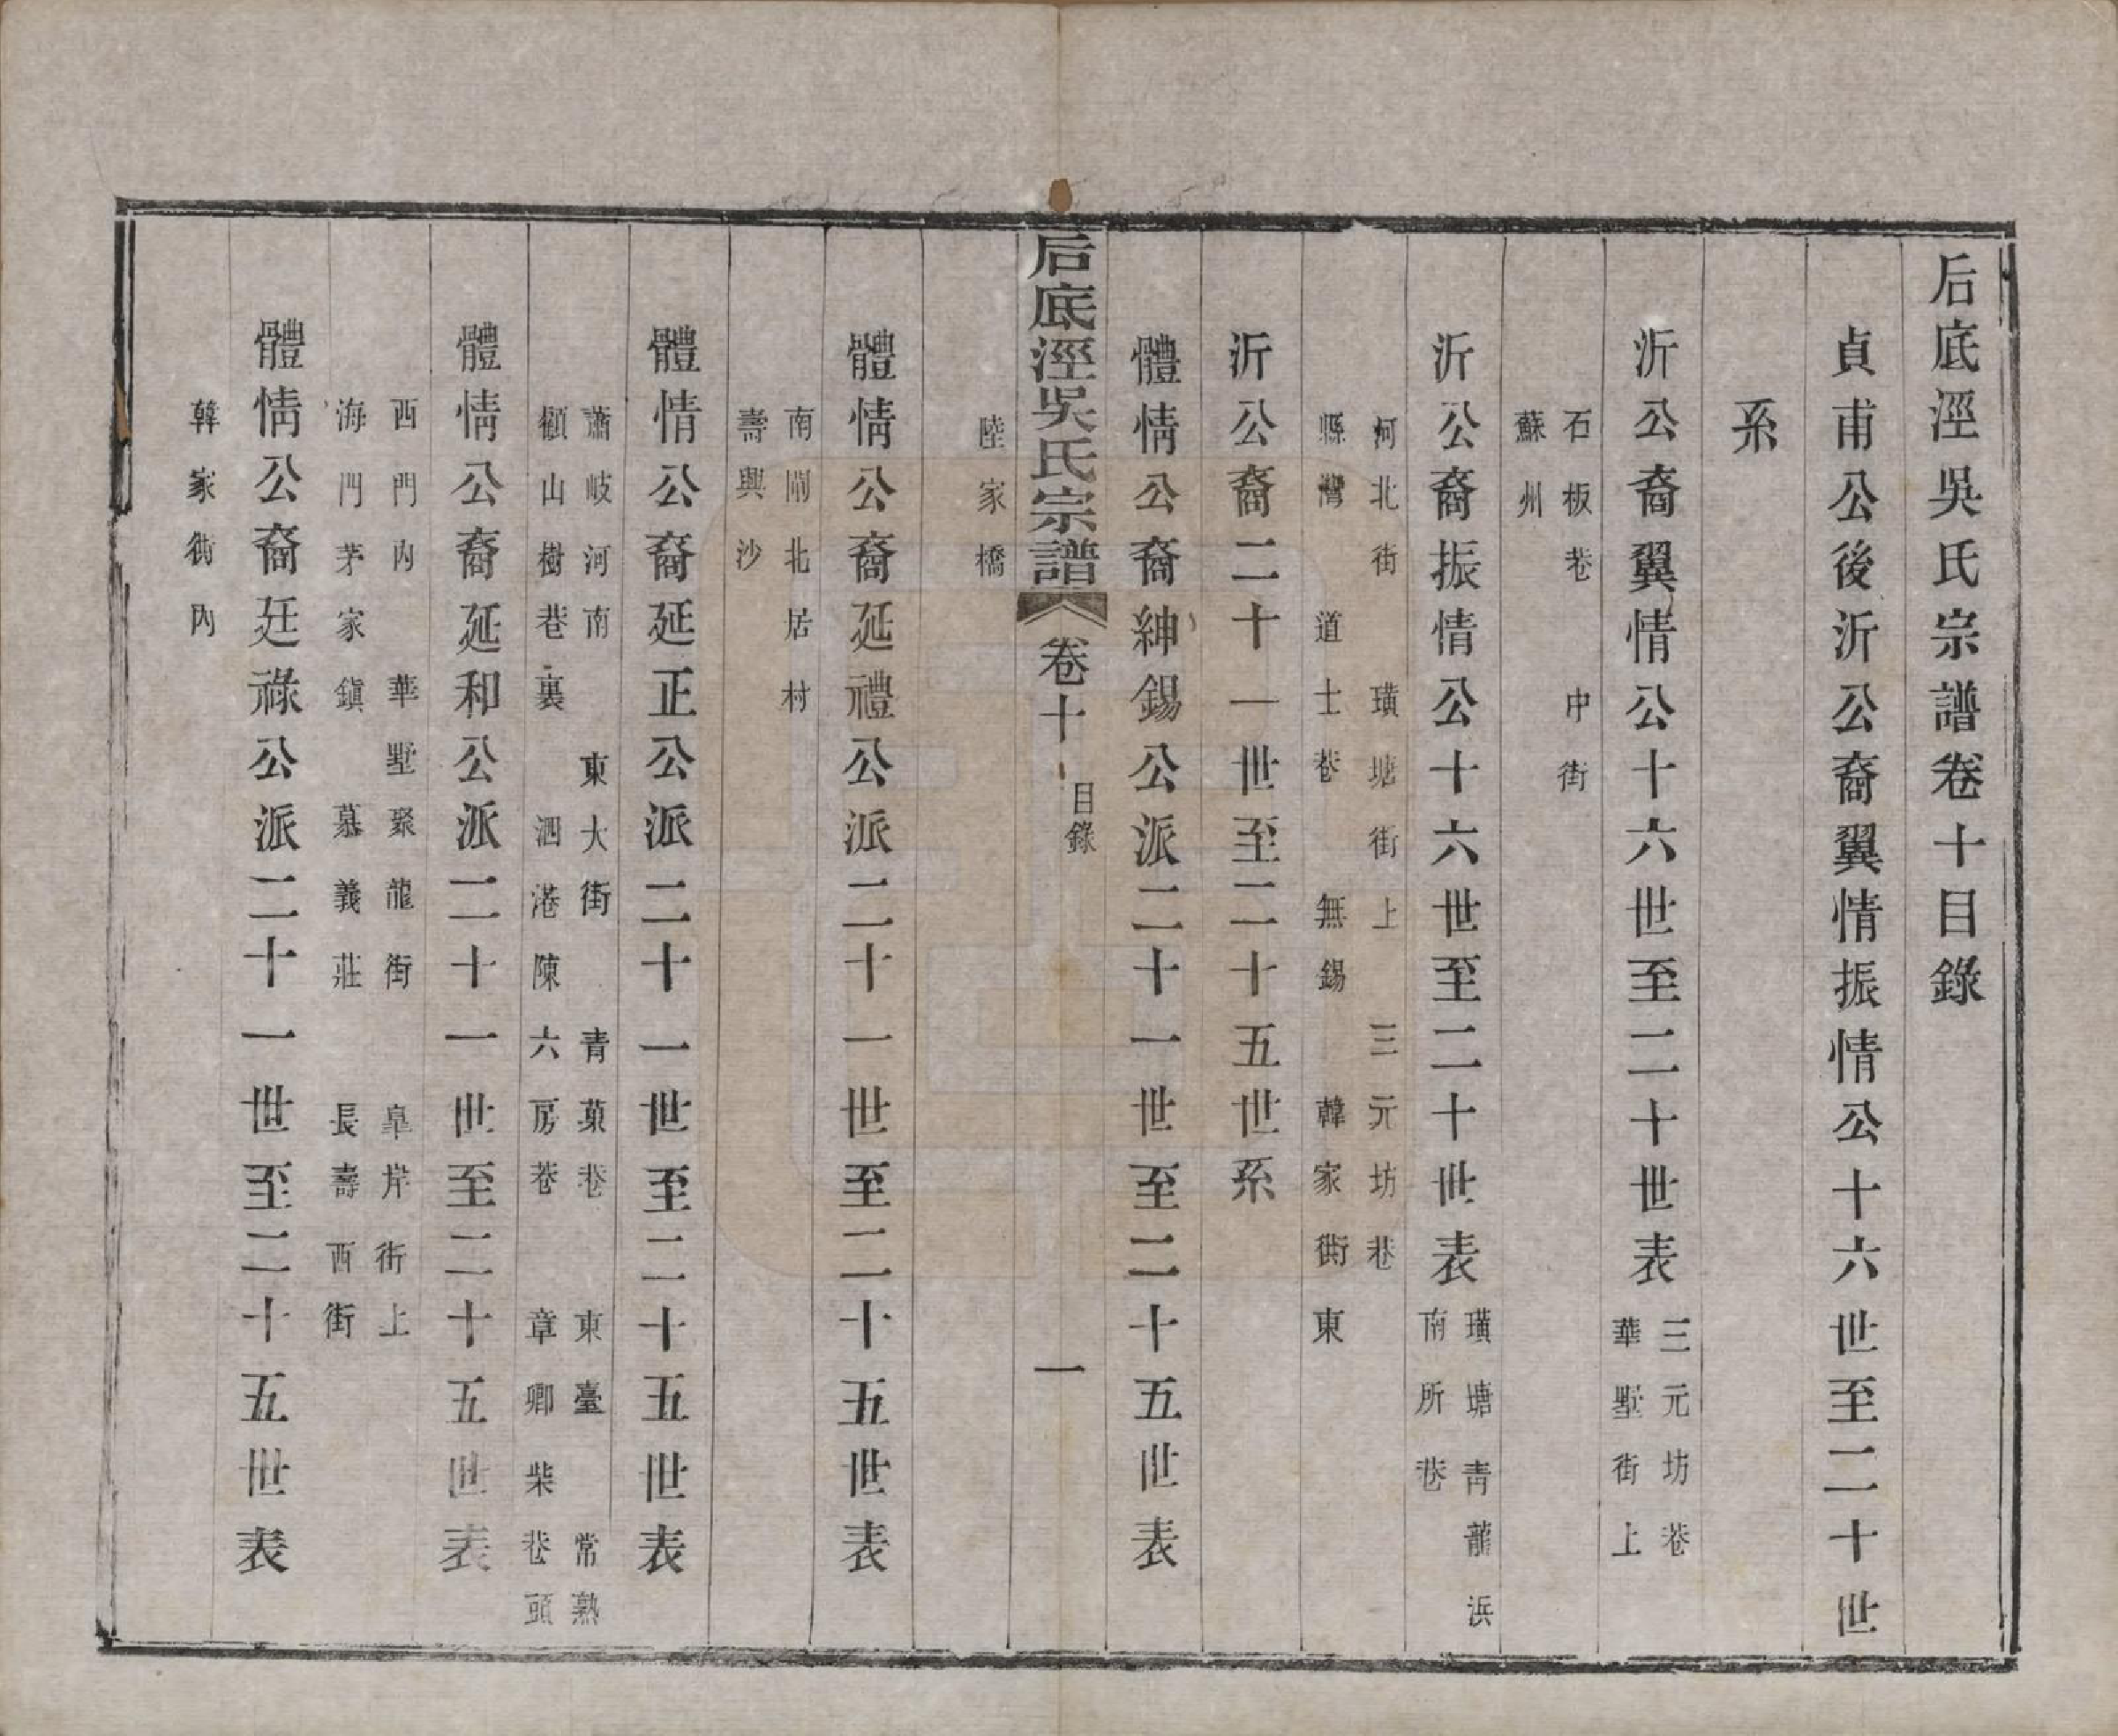 后底涇吳氏宗譜卷十目錄
貞甫公後沂公裔翼情振情公十六世至二十世
系
沂公裔翼情公十六世至二十世表
三元坊巷
華墅街上
石板巷 中街
蘇州
沂公裔振情公十六世至二十世表
璜塘青龍浜
南所巷
河北街 璜塘街上 三元坊巷
縣灣 道士巷 無錫 韓家衖東
沂公裔二十一世至二十五世系
體情公裔紳錫公派二十一世至二十五世表
后底涇吳氏宗譜 卷十 目錄 一
陸家橋
體情公裔延禮公派二十一世至二十五世表
南閘北居村
壽興沙
體情公裔延正公派二十一世至二十五世表
蕭岐河南 東大街 青菓巷 東臺 常熟
顧山樹巷裏 泗港陳六房巷 章卿柴巷頭
體情公裔延和公派二十一世至二十五世表
西門內 華墅聚龍街 皐岸街上
海門茅家鎭 慕義莊 長壽西街
體情公裔廷祿公派二十一世至二十五世表
韓家衖內